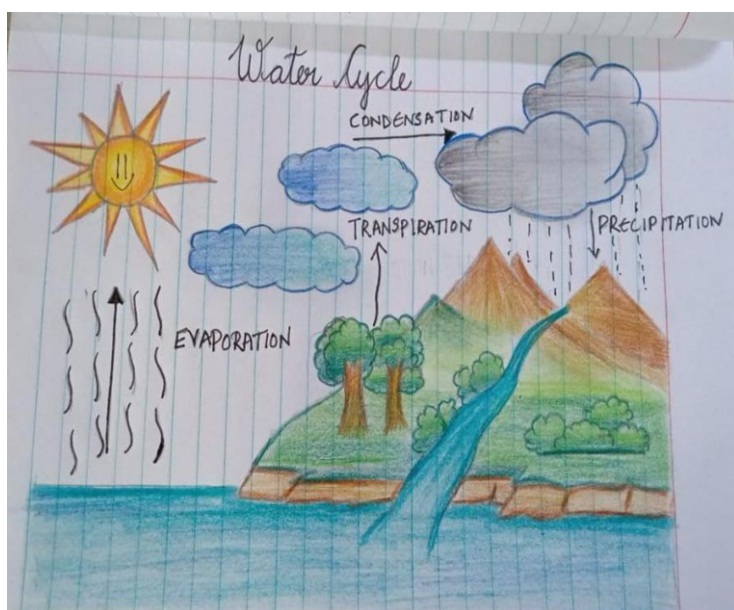 Water Cycle
CONDENSATION
TRANSPIRATION
PRECIPITATION
EVAPORATION